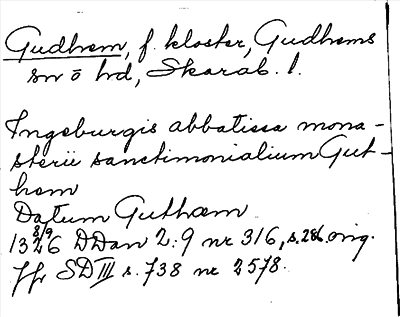 Gudhem, f. kloster, Gudhems
sn o hd, Skarab. l.
Ingeburgis abbatissa mona-
sterii sanctimonialium Gut-
hem
Datum Guthæm
1326 8/9 DDan 2:9 nr 316, s. 286. orig.
Jfr SD III s. 738 nr 2578.